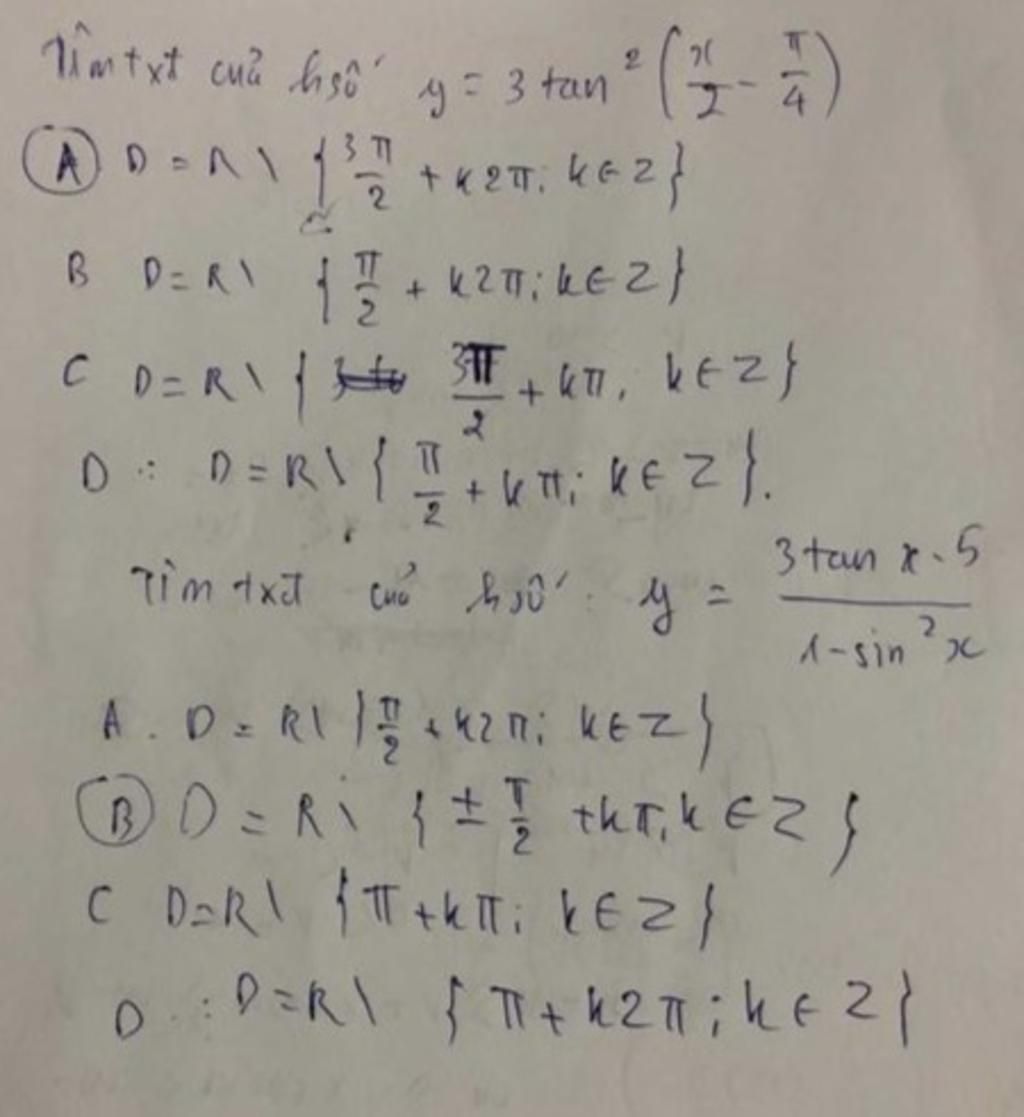 Tìm txđ của hsố y = 3 tan² (x/2 - π/4)
A D = R \ { 3π/2 + k2π; k ∈ Z }
B D = R \ { π/2 + k2π; k ∈ Z }
C D = R \ { 3π/2 + kπ, k ∈ Z }
D : D = R \ { π/2 + kπ; k ∈ Z }.
Tìm txđ của hsố : y = (3 tan x - 5)/(1 - sin² x)
A. D = R \ { π/2 + k2π; k ∈ Z }
B D = R \ { ± π/2 + kπ, k ∈ Z }
C D = R \ { π + kπ; k ∈ Z }
D : D = R \ { π + k2π; k ∈ Z }